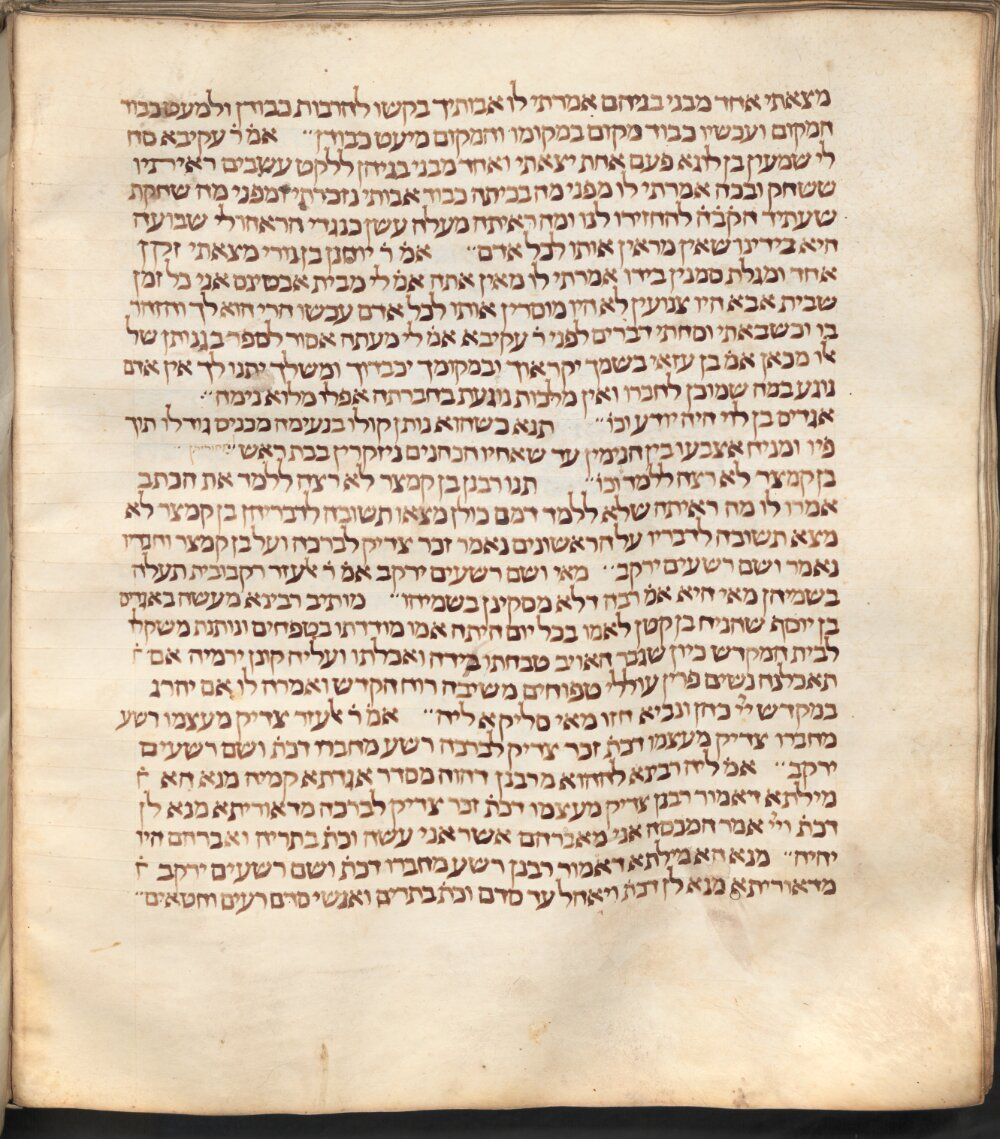 מצאתי אחד מבני בניהם אמרתי לו אבותיך בקשו להרבות כבודן ולמעט כבוד
המקום ועכשיו כבוד מקום במקומו והמקום מיעט כבודן״ אמ׳ ר׳ עקיבא סח
לי שמעון בן לוגא פעם אחת יצאתי ואחד מבני בניהן ללקט עשבים ראיתיו
ששחק ובכה אמרתי לו מפני מה בכיתה כבוד אבותי נזכרתי ומפני מה שחקת
שעתיד הקב׳ה׳ להחזירו לנו ומה ראיתה מעלה עשן כנגדי הראהו לי שבועה
היא בידינו שאין מראין אותו לכל אדם״ אמ׳ ר׳ יוחנן בן נורי מצאתי זקן
אחד ומגלת סמנין בידו אמרתי לו מאין אתה אמ׳ לי מבית אבטינס אני כל זמן
שבית אבא היו צנועין לא היו מוסרין אותו לכל אדם עכשו הרי הוא לך והזהר
בו וכשבאתי וסחתי דברים לפני ר׳ עקיבא אמ׳ לי מעתה אסור לספר בגנותן של
אלו מכאן אמ׳ בן עזאי בשמך יקראוך ובמקומך יכבדוך ומשלך יתנו לך אין אדם
נוגע במה שמוכן לחברו ואין מלכות נוגעת בחברתה אפלו מלוא נימה״
אגדיס בן לוי היה יודע וכו׳״ תנא כשהוא נותן קולו בנעימה מכניס גודלו תוך
פיו ומניח אצבעו בין הנימין עד שאחיו הכהנים ניזקרין בבת ראש״
בן קמצר לא רצה ללמד וכו׳״ תנו רבנן בן קמצר לא רצה ללמד את הכתב
אמרו לו מה ראיתה שלא ללמד דמם כולן מצאו תשובה לדבריהן בן קמצר לא
מצא תשובה לדבריו על הראשונים נאמר זכר צדיק לברכה ועל בן קמצר וחבריו
נאמר ושם רשעים ירקב״ מאי ושם רשעים ירקב אמ׳ ר׳ אלעזר רקבובית תעלה
בשמיהן מאי היא אמ׳ רבה דלא מסקינן בשמיהו״ מותיב רבינא מעשה באגדיס
בן יוסף שהניח בן קטן לאמו בכל יום היתה אמו מודדתו בטפחים ונותנת משקלו
לבית המקדש כיון שגבר האויב טבחתו בידה ואכלתו ועליה קונן ירמיה אם
תאכלנה נשים פרין עוללי טפוחים משיבה רוח הקדש ואמרה לו אם יהרג
במקדש יי׳ כהן ונביא חזו מאי סליקא ליה״ אמ׳ ר׳ אלעזר צדיק מעצמו רשע
מחברו צדיק מעצמו דכת׳ זכר צדיק לברכה רשע מחברו דכת׳ ושם רשעים
ירקב״ אמ׳ ליה רבינא לההוא מרבנן דהוה מסדר אגדתא קמיה מנא הא
מילתא דאמור רבנן צדיק מעצמו דכת׳ זכר צדיק לברכה מדאוריתא מנא לן
דכת׳ ויי׳ אמר המכסה אני מאברהם אשר אני עשה וכת׳ בתריה ואברהם היו
יהיה״ מנא הא מילתא דאמור רבנן רשע מחברו דכת׳ ושם רשעים ירקב
מדאוריתא מנא לן דכת׳ ויאהל עד סדם וכת׳ בתריה ואנשי סדם רעים וחטאים״